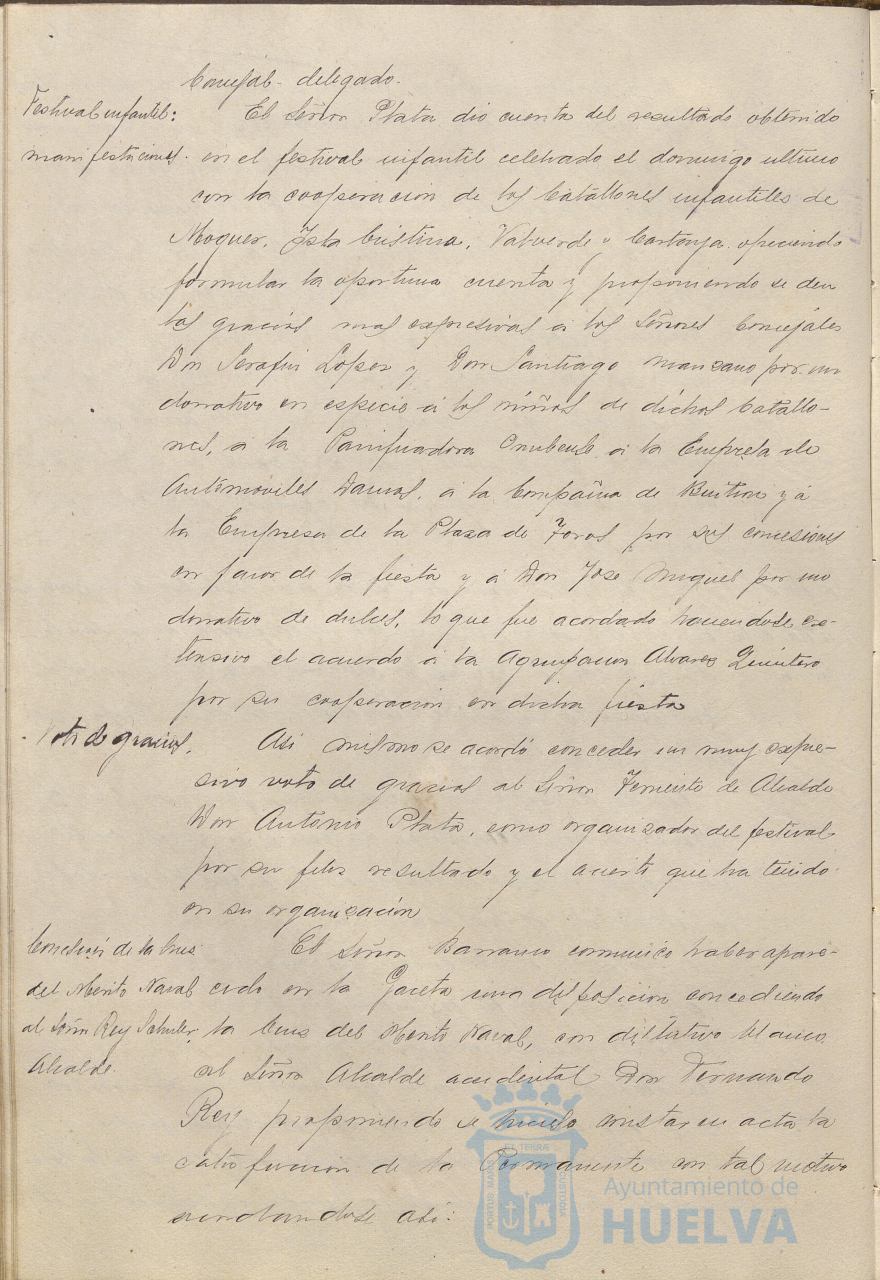 Concejal delegado.
Festival infantil:
manifestaciones.
El Señor Plata dio cuenta del resultado obtenido
en el festival infantil celebrado el domingo ultimo
con la cooperacion de los batallones infantiles de
Moguer, Isla Cristina, Valverde y Cartaya, ofreciendo
formular la oportuna cuenta y proponiendo se den
las gracias mas expresivas á los Señores Concejales
Don Serafin Lopez y Don Santiago Manzano por un
donativo en especie á los niños de dichos batallo-
nes, á la Panificadora Onubense, á la Empresa de
Automoviles Damas, á la Compañia de Buitron y á
la Empresa de la Plaza de Toros por sus concesiones
en favor de la fiesta y á Don Jose Miguel por un
donativo de dulces, lo que fue acordado haciendose ex-
tensivo el acuerdo á la Agrupacion Alvarez Quintero
por su cooperacion en dicha fiesta
Voto de gracias.
Asi mismo se acordó conceder un muy expre-
sivo voto de gracias al Señor Teniente de Alcalde
Don Antonio Plata, como organizador del festival
por su feliz resultado y el acierto que ha tenido
en su organización
Concesión de la Cruz
del Merito Naval
al Señor Rey Schuler,
Alcalde.
El Señor Barranco comunico haber apare-
cido en la Gaceta una disposicion concediendo
la Cruz del Merito Naval, con distintivo blanco
al Señor Alcalde accidental Don Fernando
Rey proponiendo se hiciese constar en acta la
satisfaccion de la Permanente con tal motivo
acordandose asi:
PORTUS MARIS ET TERRAE CUSTODIA
Ayuntamiento de
HUELVA